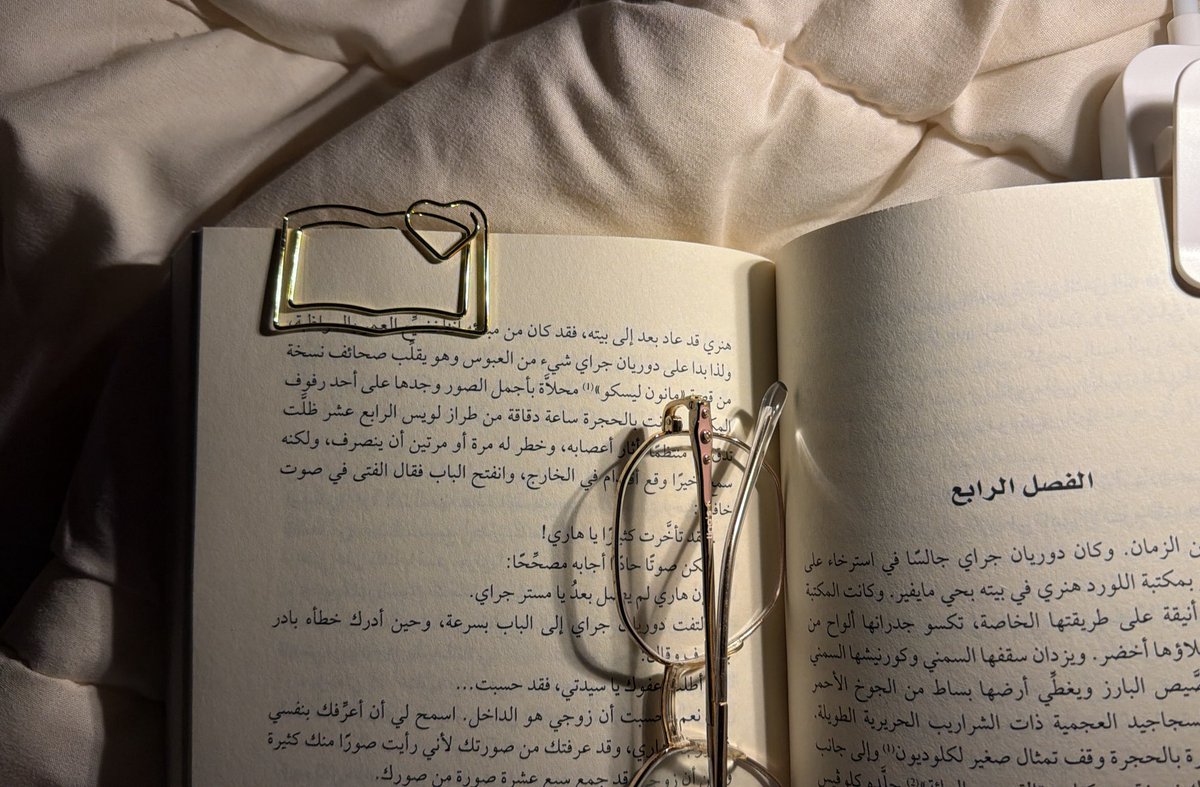 الفصل الرابع
الزمان. وكان دوريان جراي جالسًا في استرخاء على
بمكتبة اللورد هنري في بيته بحي مايفير. وكانت المكتبة
أنيقة على طريقتها الخاصة، تكسو جدرانها ألواح من
أخضر. ويزدان سقفها السمني وكورنيشها السمني
البارز ويغطِّي أرضها بساط من الجوخ الأحمر
العجمية ذات الشراريب الحريرية الطويلة.
بالحجرة وقف تمثال صغير لكلوديون(١) وإلى جانب
هنري قد عاد بعد إلى بيته، فقد كان من
ولذا بدا على دوريان جراي شيء من العبوس وهو يقلِّب صحائف نسخة
من «مانون ليسكو»(١) محلاَّة بأجمل الصور وجدها على أحد رفوف
بالحجرة ساعة دقاقة من طراز لويس الرابع عشر ظلَّت
أعصابه، وخطر له مرة أو مرتين أن ينصرف، ولكنه
وقع في الخارج، وانفتح الباب فقال الفتى في صوت
تأخَّرت يا هاري!
صوتًا أجابه مصحِّحًا:
هاري لم بعدُ يا مستر جراي.
جراي إلى الباب بسرعة، وحين أدرك خطأه بادر
عفوك يا سيدتي، فقد حسبت...
نعم حسبت أن زوجي هو الداخل. اسمح لي أن أعرِّفك بنفسي
وقد عرفتك من صورتك لأني رأيت صورًا منك كثيرة
قد جمع سبع عشرة صورة من صورك.